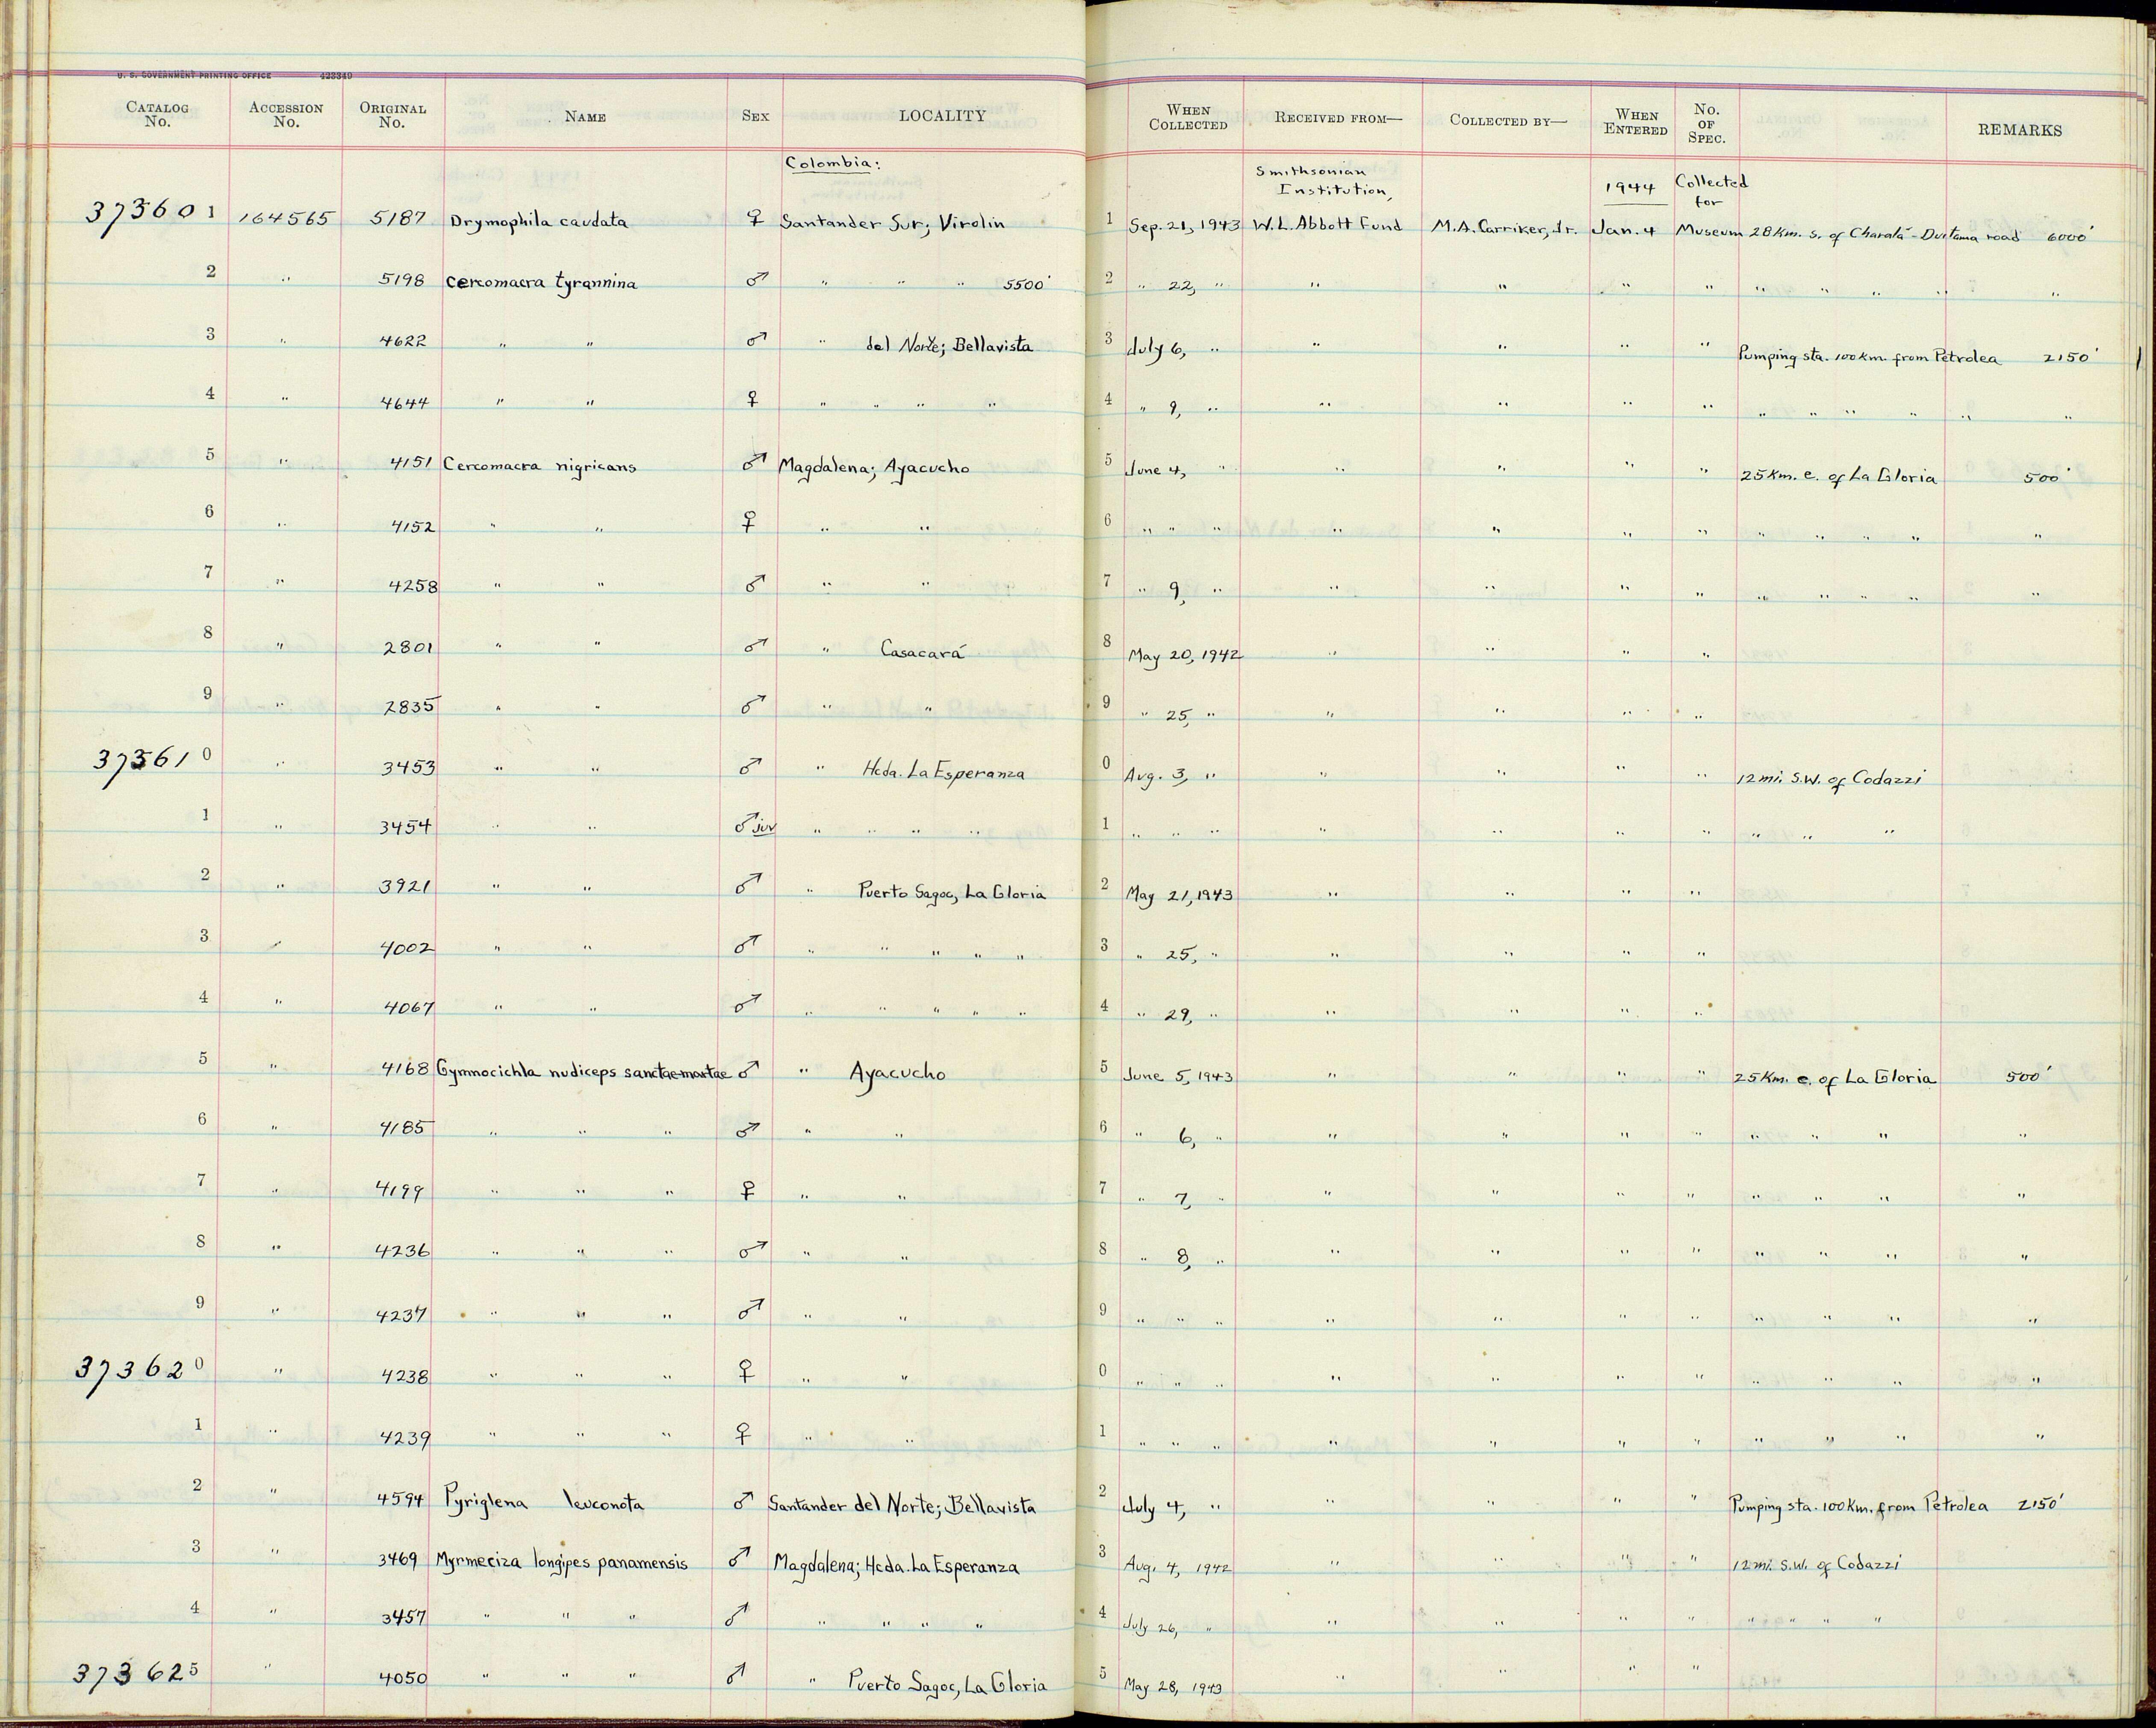 U. S. GOVERNMENT PRINTING OFFICE 423349
CATALOG No. ACCESSION No. ORIGINAL No. NAME SEX LOCALITY WHEN COLLECTED RECEIVED FROM— COLLECTED BY— WHEN ENTERED No. OF SPEC. REMARKS
Colombia: Smithsonian Institution, 1944 Collected for
373601 164565 5187 Drymophila caudata ♀ Santander Sur; Virolin 1 Sep. 21, 1943 W.L. Abbott Fund M.A. Carriker, Jr. Jan. 4 Museum 28 Km. s. of Charalá - Duitama road 6000'
2 " 5198 Cercomacra tyrannina ♂ " " " 5500' 2 " 22, " " " " " " " " " "
3 " 4622 " " ♂ " del Norte; Bellavista 3 July 6, " " " " " Pumping sta. 100 Km. from Petrolea 2150'
4 " 4644 " " ♀ " " " " 4 " 9, " " " " " " " " " " "
5 " 4151 Cercomacra nigricans ♂ Magdalena; Ayacucho 5 June 4, " " " " " 25 Km. e. of La Gloria 500'
6 " 4152 " " ♀ " " 6 " " " " " " " " " " " "
7 " 4258 " " ♂ " " 7 " 9, " " " " " " " " " "
8 " 2801 " " ♂ " Casacará 8 May 20, 1942 " " " "
9 " 2835 " " ♂ " " 9 " 25, " " " " "
373610 " 3453 " " ♂ " Hcda. La Esperanza 0 Aug. 3, " " " " " 12 mi. S.W. of Codazzi
1 " 3454 " " ♂ juv " " " " 1 " " " " " " " " " "
2 " 3921 " " ♂ " Puerto Sagoc, La Gloria 2 May 21, 1943 " " " "
3 " 4002 " " ♂ " " " " " 3 " 25, " " " " "
4 " 4067 " " ♂ " " " " " 4 " 29, " " " " "
5 " 4168 Gymnocichla nudiceps sanctae-martae ♂ " Ayacucho 5 June 5, 1943 " " " " 25 Km. e. of La Gloria 500'
6 " 4185 " " " ♂ " " 6 " 6, " " " " " " " " "
7 " 4199 " " " ♀ " " 7 " 7, " " " " " " " " "
8 " 4236 " " " ♂ " " 8 " 8, " " " " " " " " "
9 " 4237 " " " ♂ " " 9 " " " " " " " " " " "
373620 " 4238 " " " ♀ " " 0 " " " " " " " " " " "
1 " 4239 " " " ♀ " " 1 " " " " " " " " " " "
2 " 4594 Pyriglena leuconota ♂ Santander del Norte; Bellavista 2 July 4, " " " " " Pumping sta. 100 Km. from Petrolea 2150'
3 " 3469 Myrmeciza longipes panamensis ♂ Magdalena; Hcda. La Esperanza 3 Aug. 4, 1942 " " " " 12 mi. S.W. of Codazzi
4 " 3457 " " " ♂ " " " " 4 July 26, " " " " " " " " "
373625 " 4050 " " " ♂ " Puerto Sagoc, La Gloria 5 May 28, 1943 " " " "